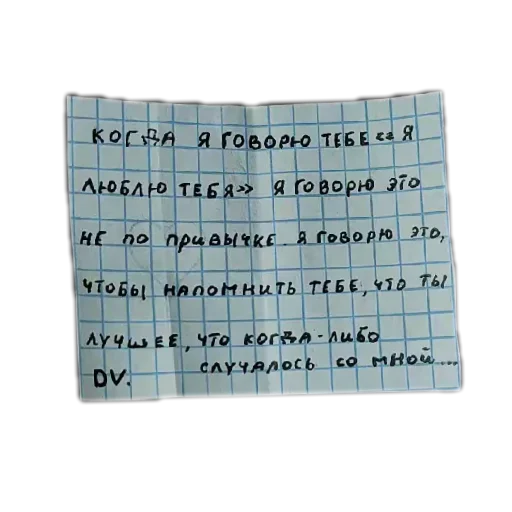 КОГДА Я ГОВОРЮ ТЕБЕ «Я
ЛЮБЛЮ ТЕБЯ» Я ГОВОРЮ ЭТО
НЕ ПО ПРИВЫЧКЕ. Я ГОВОРЮ ЭТО,
ЧТОБЫ НАПОМНИТЬ ТЕБЕ, ЧТО ТЫ
ЛУЧШЕЕ, ЧТО КОГДА-ЛИБО
СЛУЧАЛОСЬ СО МНОЙ...
DV.